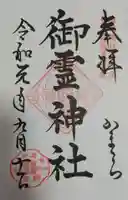 奉拝
かまくら
御霊神社
令和元年九月十一日